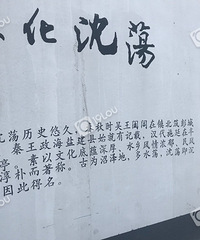 化沈蕩
荡历史悠久，春秋时吴王阖闾在镇北筑彭城
秦王政海盐建县
亭。素以文化底蕴深厚、水乡风情浓郁、民风
淳朴而著称。古为沼泽地，多水荡，沈荡即
因此得名。